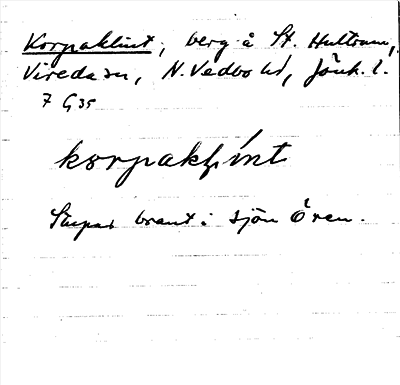 Korpaklint, berg å St. Hultrum,
Vireda sn, N. Vedbo hd, Jönk. l.
7 G 35
korpakl̥ínt
Stupar brant i sjön Ören.